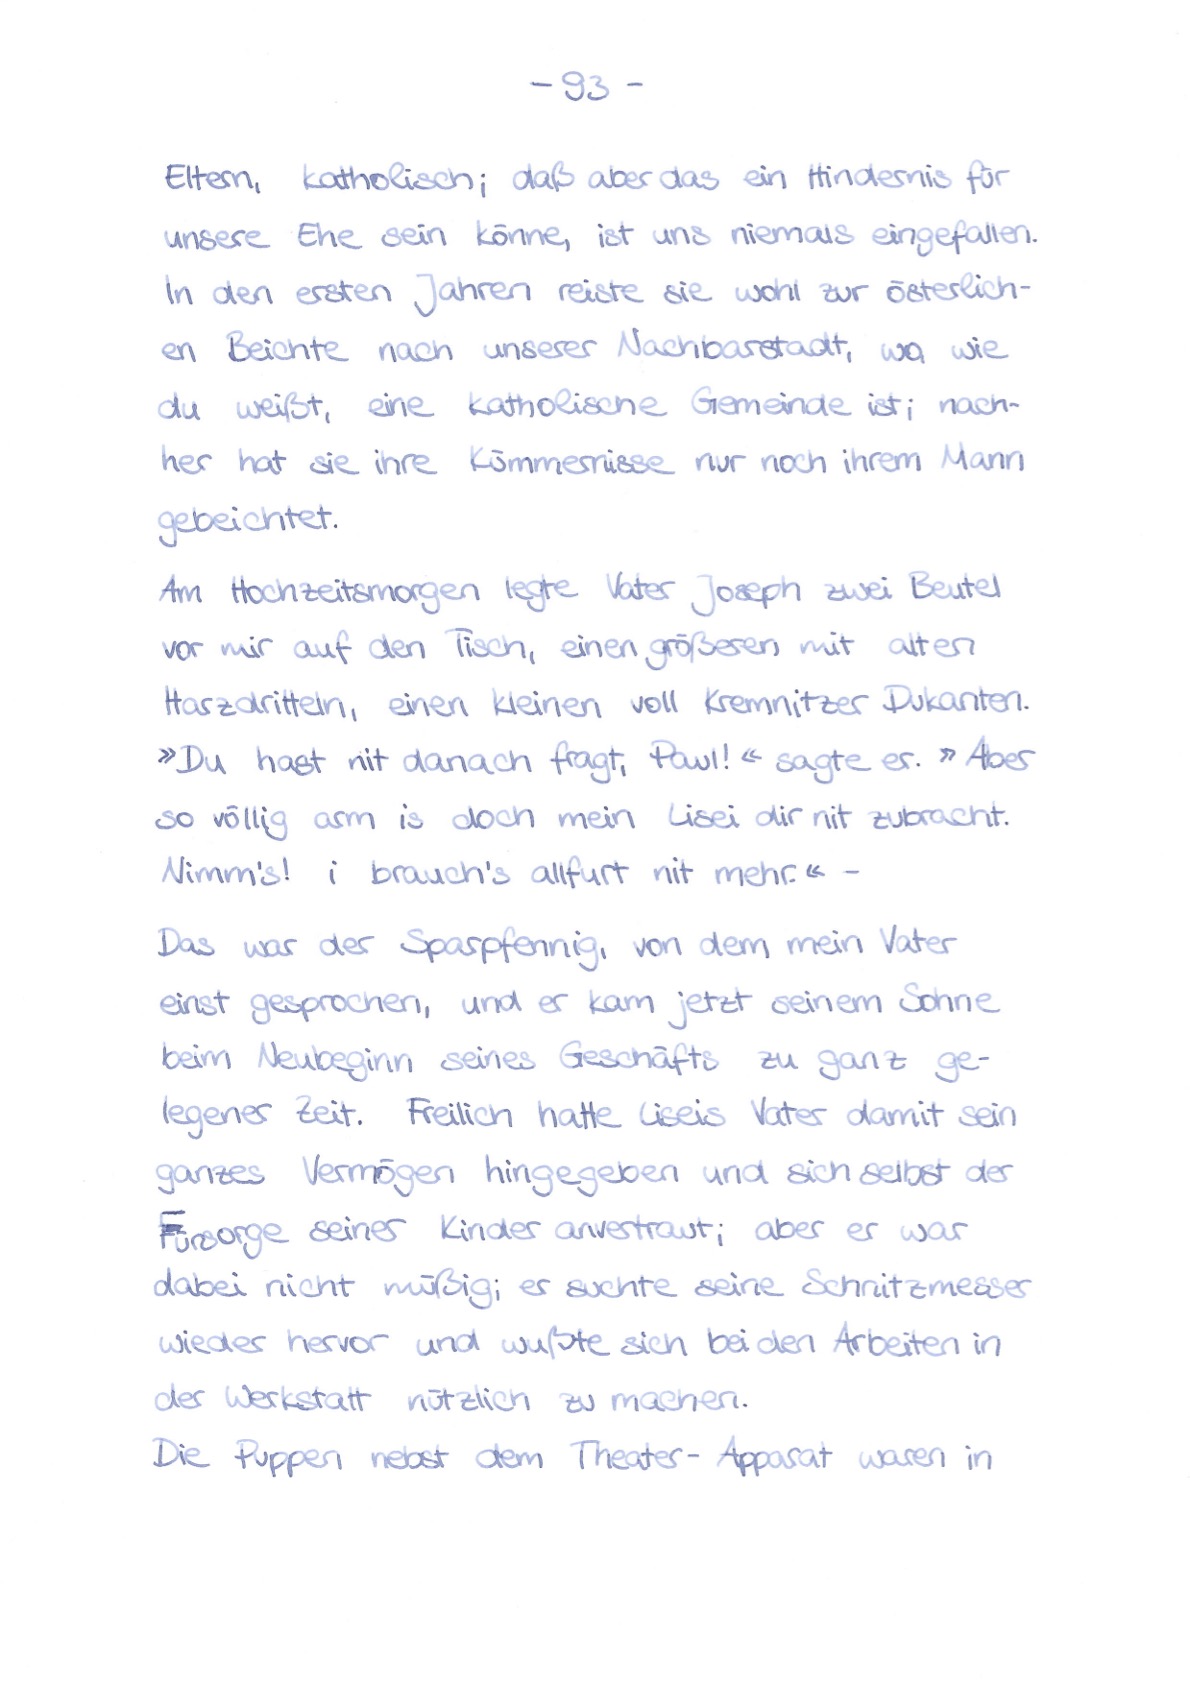 - 93 -
Eltern, katholisch; daß aber das ein Hindernis für
unsere Ehe sein könne, ist uns niemals eingefallen.
In den ersten Jahren reiste sie wohl zur österlich-
en Beichte nach unserer Nachbarstadt, wo wie
du weißt, eine katholische Gemeinde ist; nach-
her hat sie ihre Kümmernisse nur noch ihrem Mann
gebeichtet.
Am Hochzeitsmorgen legte Vater Joseph zwei Beutel
vor mir auf den Tisch, einen größeren mit alten
Harzdritteln, einen kleinen voll Kremnitzer Dukanten.
»Du hast nit danach fragt, Paul!« sagte er. »Aber
so völlig arm is doch mein Lisei dir nit zubracht.
Nimm's! i brauch's allfurt nit mehr.« -
Das war der Sparpfennig, von dem mein Vater
einst gesprochen, und er kam jetzt seinem Sohne
beim Neubeginn seines Geschäfts zu ganz ge-
legener Zeit. Freilich hatte Liseis Vater damit sein
ganzes Vermögen hingegeben und sich selbst der
Fürsorge seiner Kinder anvertraut; aber er war
dabei nicht müßig; er suchte seine Schnitzmesser
wieder hervor und wußte sich bei den Arbeiten in
der Werkstatt nützlich zu machen.
Die Puppen nebst dem Theater-Apparat waren in